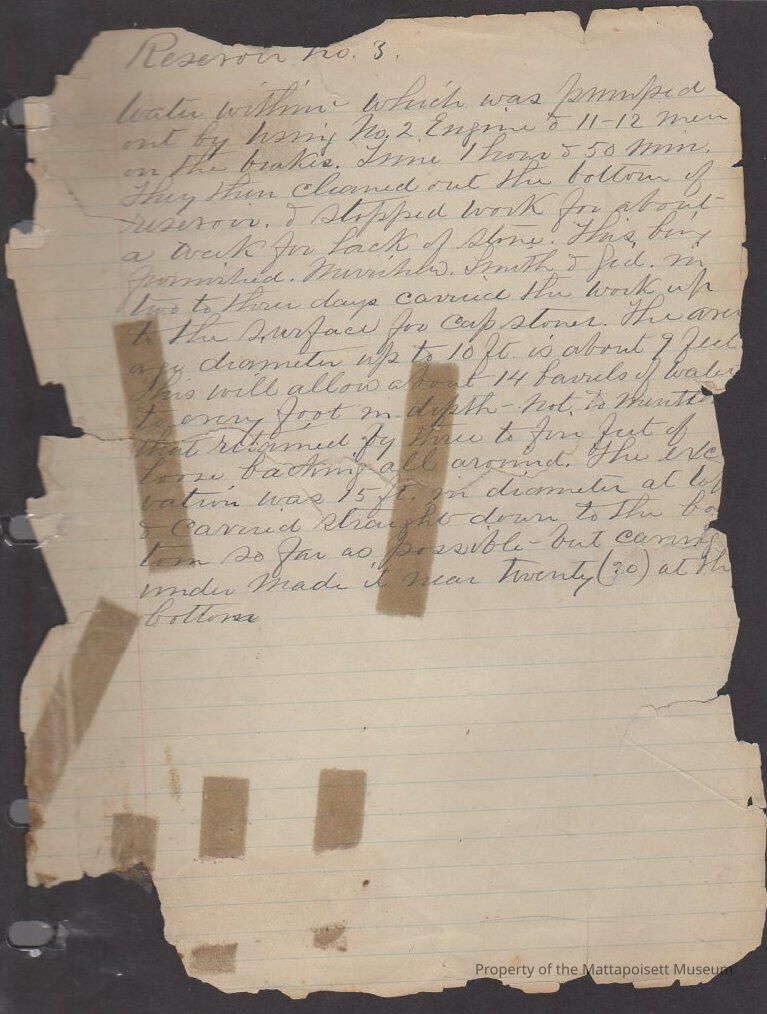 Reservoir no. 3.
Water within which was pumped
out by using No. 2 Engine & 11-12 men
on the brakes. Time 1 hour & 50 min.
They then cleaned out the bottom of
reservoir. & stopped work for about
a week for lack of stone. This being
furnished. Smith & Ged. in
two to three days carried the work up
to the surface for cap stones. The aver
age diameter up to 10 ft. is about 9 feet
This will allow about 14 barrels of water
to every foot in depth - not to mention
that retained by three to five feet of
loose backing all around. The exc
vation was 15 ft. in diameter at top
& carried straight down to the bo
tom so far as possible - but caving
under made it near twenty (20) at th
bottom
Property of the Mattapoisett Museum